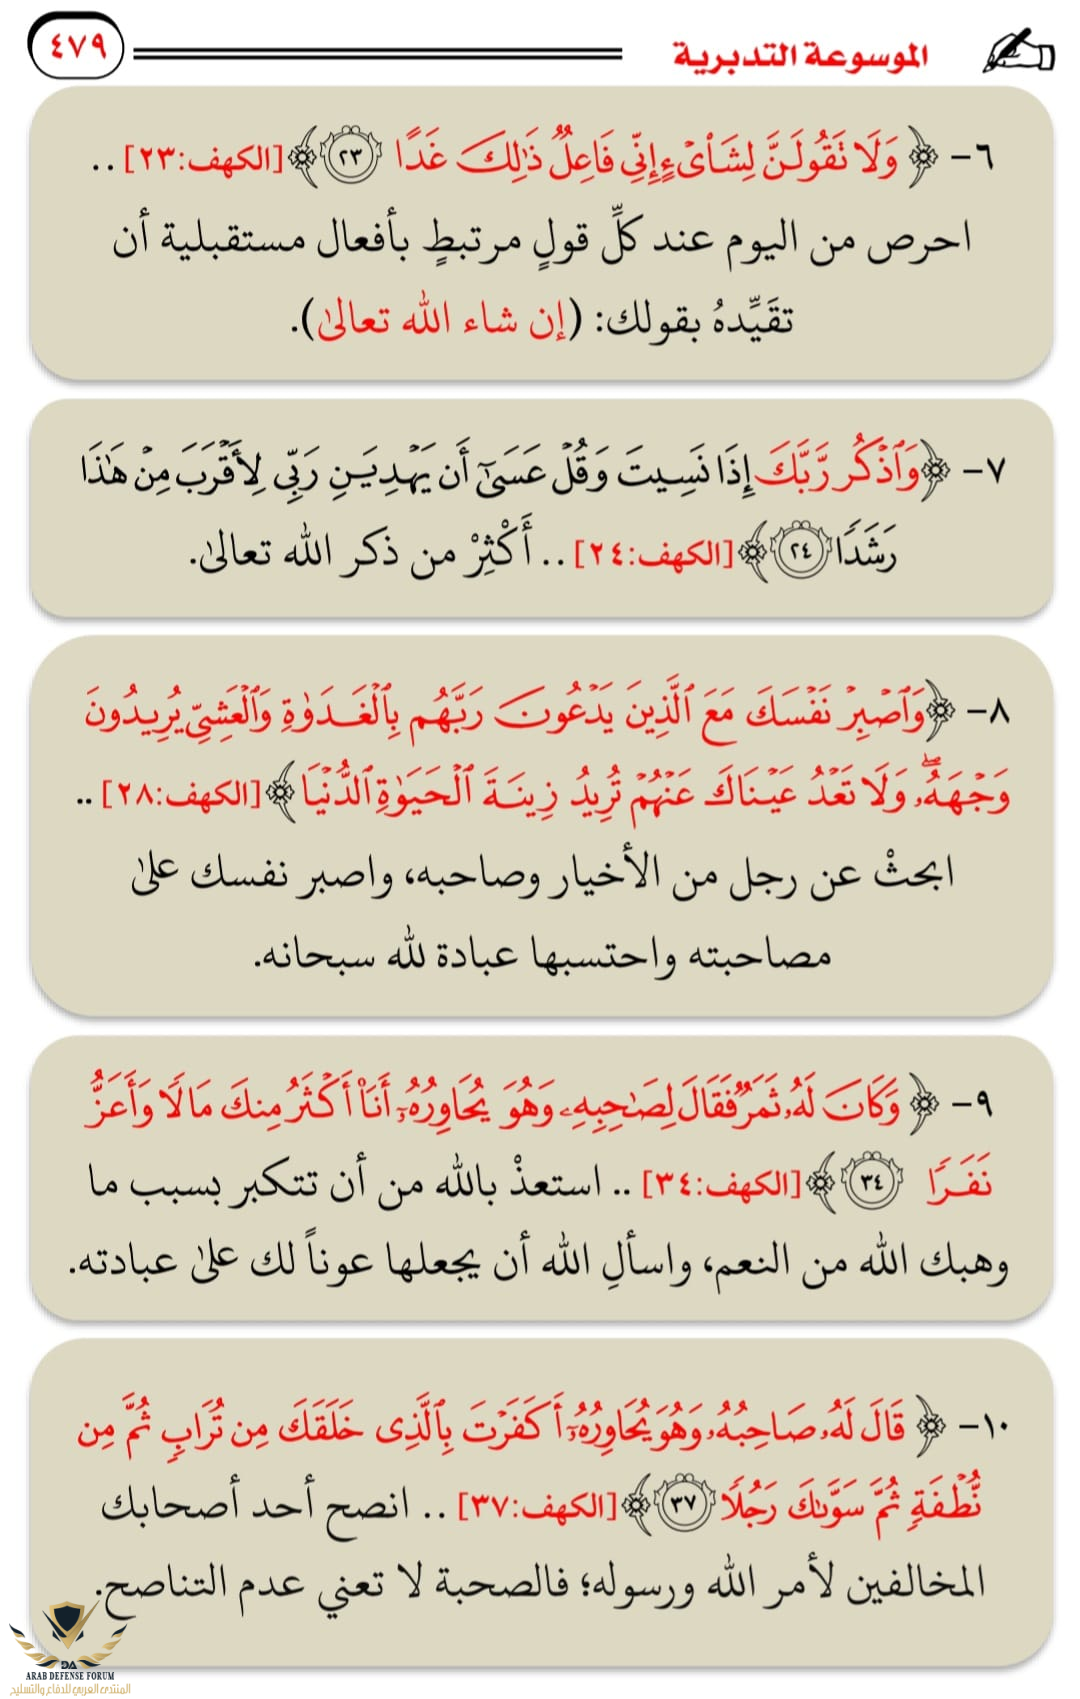 الموسوعة التدبرية
٤٧٩
٦- ﴿ وَلَا تَقُولَنَّ لِشَاْىۡءٍ إِنِّي فَاعِلٌ ذَٰلِكَ غَدًا ٢٣ ﴾ [الكهف:٢٣] ..
احرص من اليوم عند كلِّ قولٍ مرتبطٍ بأفعال مستقبلية أن
تقَيِّدهُ بقولك: (إن شاء الله تعالىٰ).
٧- ﴿وَٱذۡكُر رَّبَّكَ إِذَا نَسِيتَ وَقُلۡ عَسَىٰٓ أَن يَهۡدِيَنِ رَبِّي لِأَقۡرَبَ مِنۡ هَٰذَا
رَشَدٗا ٢٤ ﴾ [الكهف:٢٤] .. أَكْثِرْ من ذكر الله تعالىٰ.
٨- ﴿وَٱصۡبِرۡ نَفۡسَكَ مَعَ ٱلَّذِينَ يَدۡعُونَ رَبَّهُم بِٱلۡغَدَوٰةِ وَٱلۡعَشِيِّ يُرِيدُونَ
وَجۡهَهُۥۖ وَلَا تَعۡدُ عَيۡنَاكَ عَنۡهُمۡ تُرِيدُ زِينَةَ ٱلۡحَيَوٰةِ ٱلدُّنۡيَا ﴾ [الكهف:٢٨] ..
ابحثْ عن رجل من الأخيار وصاحبه، واصبر نفسك علىٰ
مصاحبته واحتسبها عبادة لله سبحانه.
٩- ﴿ وَكَانَ لَهُۥ ثَمَرٞ فَقَالَ لِصَٰحِبِهِۦ وَهُوَ يُحَاوِرُهُۥٓ أَنَا۠ أَكۡثَرُ مِنكَ مَالٗا وَأَعَزُّ
نَفَرٗا ٣٤ ﴾ [الكهف:٣٤] .. استعذْ بالله من أن تتكبر بسبب ما
وهبك الله من النعم، واسألِ الله أن يجعلها عوناً لك علىٰ عبادته.
١٠- ﴿ قَالَ لَهُۥ صَاحِبُهُۥ وَهُوَ يُحَاوِرُهُۥٓ أَكَفَرۡتَ بِٱلَّذِي خَلَقَكَ مِن تُرَابٖ ثُمَّ مِن
نُّطۡفَةٖ ثُمَّ سَوَّىٰكَ رَجُلٗا ٣٧ ﴾ [الكهف:٣٧] .. انصح أحد أصحابك
المخالفين لأمر الله ورسوله؛ فالصحبة لا تعني عدم التناصح.
DA
ARAB DEFENSE FORUM
المنتدى العربي للدفاع والتسليح